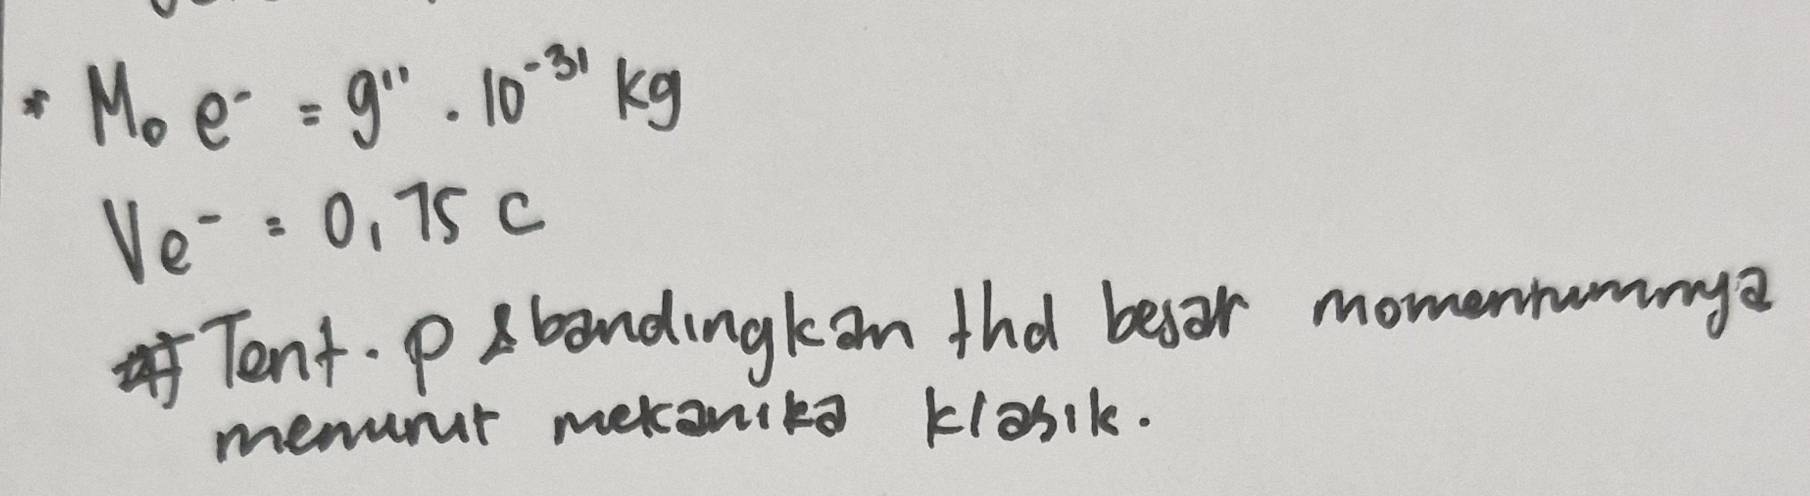 * M₀ e⁻ = 9'' . 10⁻³¹ kg
Ve⁻ = 0,75 c
Tent. p & bandingkan thd besar momentumnya
menurut mekanika klasik.